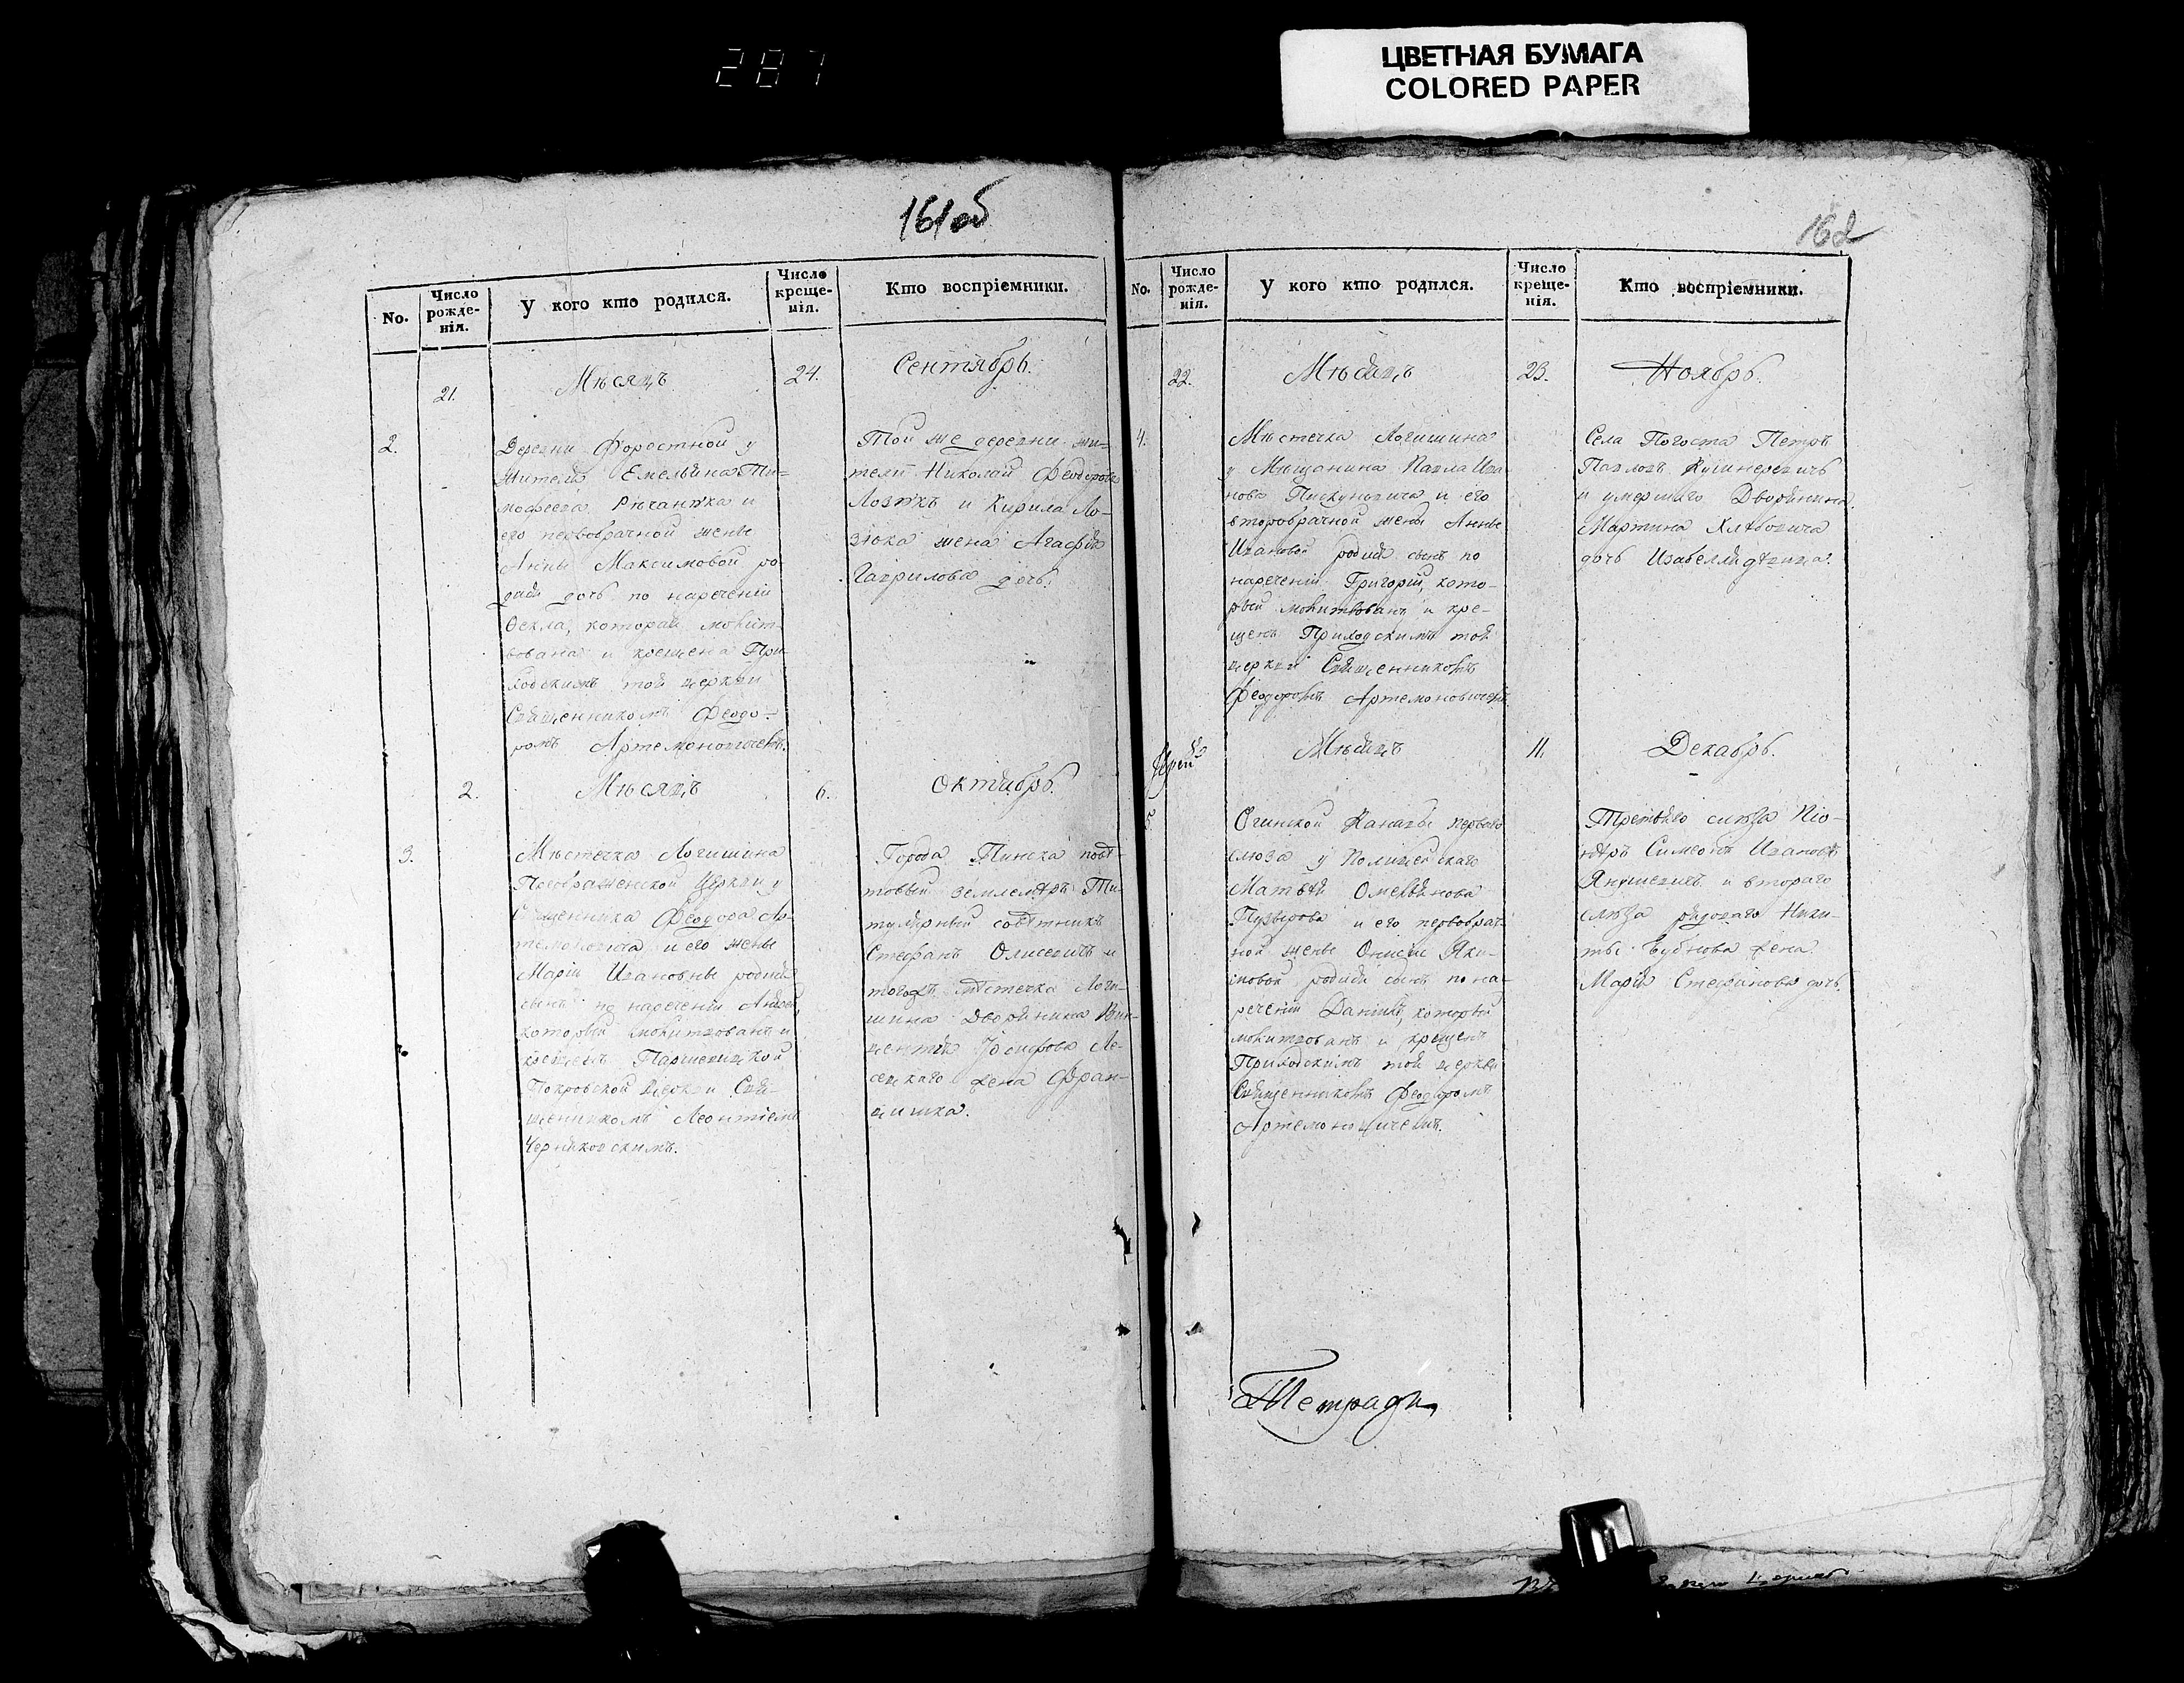 287
ЦВЕТНАЯ БУМАГА
COLORED PAPER
161об
No.
Число рожде-нія.
У кого кто родился.
Число креще-нія.
Кто воспріемники.
21.
Мѣсяцъ
24.
Сентябрь.
2.
Деревни Форостной у
жителя Емельяна Ти-
мофеева Рѣчанчка и
его первобрачной жены
Анны Максимовой ро-
дися дочь по нареченіи
Ѳекла, которая молит-
вована и крещена При-
ходскимъ той церкви
Священникомъ Феодо-
ромъ Артемоновичемъ.
Той же деревни жи-
тели Николай Феодоровъ
и Кирила Ло-
зюка жена Агафія
Гаврилова дочь.
2.
Мѣсяцъ
6.
Октябрь.
3.
Мѣстечка Логишина
Преображенской Церкви у
Священника Феодора Ар-
темоновича и его жены
Маріи Ивановны родися
сынъ по нареченіи Андрей,
который молитвованъ и
крещенъ
Покровской Церкви Свя-
щенникомъ Леонтіемъ
Черняковскимъ.
Города Пинска повѣ-
товый землемѣръ Ти-
тулярный совѣтникъ
Стефанъ Олисевичъ и
тогожъ мѣстечка Логи-
шина Дворянина Вин-
центія Іосифова Ле-
сецкаго жена Фран-
цишка.
162
No.
Число рожде-нія.
У кого кто родился.
Число креще-нія.
Кто воспріемники.
22.
Мѣсяцъ
23.
Ноябрь.
4.
Мѣстечка Логишина
у Мѣщанина Павла Ива-
нова Пискуновича и его
второбрачной жены Анны
Ивановой родися сынъ по
нареченіи Григорій, кото-
рый молитвованъ и кре-
щенъ Приходскимъ той
церкви Священникомъ
Феодоромъ Артемоновичемъ.
Села Погоста Петръ
Павловъ Кушнеревичъ
и умершаго Дворянина
Мартина
дочь Изабелля дѣвица.
Іерей
Мѣсяцъ
11.
Декабрь.
5.
Огинской Каналы перваго
слюза у Полицейскаго
Матвѣя Омельянова
Пузырова и его первобрач-
ной жены Онисіи Яки-
мовой родися сынъ по на-
реченіи Даніилъ, который
молитвованъ и крещенъ
Приходскимъ той церкви
Священникомъ Феодоромъ
Артемоновичемъ.
Третьяго слюза Піо-
нѣръ Симеонъ Ивановъ
Янушевичъ и втораго
слюза рядоваго Ники-
ты Бубнова жена
Марія Стефанова дочь.
Тетради